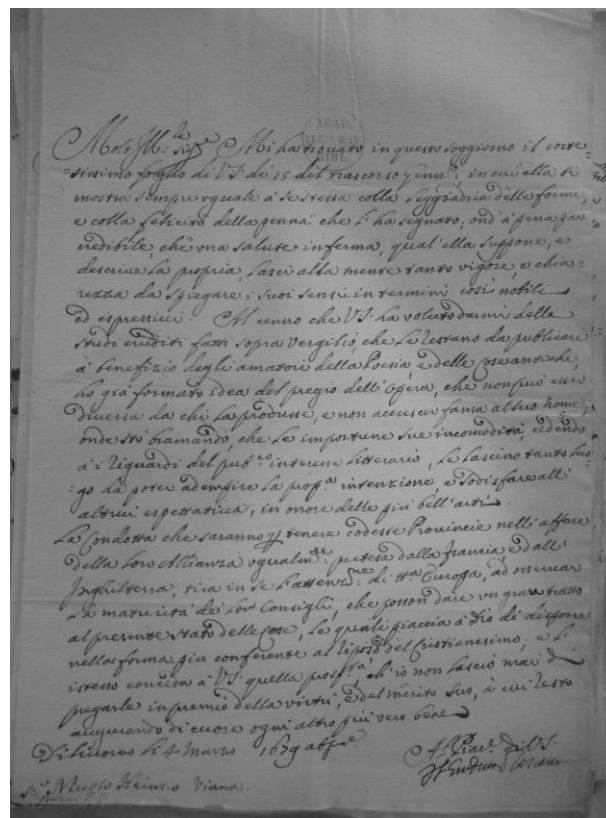 ACAD. LUGD. BAT. BIBL.
Molt' Ill: Sigre. Mi ha trovato in questo soggiorno il corte-
sissimo foglio di VS. di 15 del trascorso Genn: in cui ella si
mostra sempre uguale à se stessa colla leggiadria delle forme,
e colla felicità della penna che l'ha segnato, ond' à pena par
credibile, che una salute inferma, qual'ella suppone, e
descrive la propria, lasci alla mente tanto vigore, e chia-
rezza da spiegare i suoi sensi in termini così nobili
ed espressivi. Al cenno che VS. ha voluto darmi delle
studi eruditi fatti sopra Vergilio, che le restano da publicare
à benefizio degli amatori della Poesia, e delle cose antiche,
ho già formato idea del pregio dell'opera, che non può esser
diversa da chi la produsse, e non accrescer fama al suo nome,
onde stò bramando, che le importune sue incomodità, cedendo
à i riguardi del pubco interesse litterario, le lascino tanto luo-
go da poter adempire la propa intenzione, e sodisfare all'
altrui espettativa, in onore delle più bell'arti.
La condotta che saranno tenere codesse Provincie nell'affare
della loro Allianza ugualmte pretesa dalla Francia, e dall'
Inghilterra, tira in se l'attenzne di tta Europa, ad osservar
la maturità de' loro Consigli, che posson dare un gran tratto
al presente stato delle cose, le quali piaccia à Dio di disporre
nella forma più conferente al riposo del Cristianesimo; e l'
istesso conceda à VS. quella prosptà, ch'io non lascio mai di
pregarle in premio della virtù, e del merito suo, à cui resto
augurando di cuore ogni altro più vero bene.
Di Livorno li 4 Marzo 1679
Al Piac. di VS.
Sr. Niccolò Heinsio Viana.